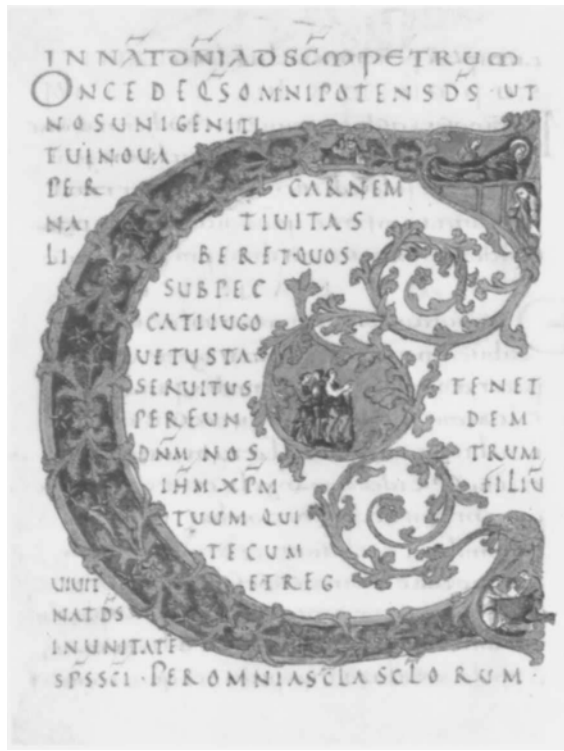 IN NĀT DN̄I AD SC̄M PETRUM
ONCEDE QS̄ OMNIPOTENS DS̄ UT
NOS UNIGENITI
TUI NOUA
PER CARNEM
NA TIUITAS
LI BERET QUOS
SUB PEC
CATI IUGO
UETUSTA
SERUITUS TENET
PER EUN DEM
DN̄M NOS TRUM
IHM̄ XPM̄ FILIŪ
TUUM QUI
TECUM
UIUIT ET REG
NAT DS̄
IN UNITATE
SPS̄ SCĪ · PER OMNIA SCLA SCLORUM ·